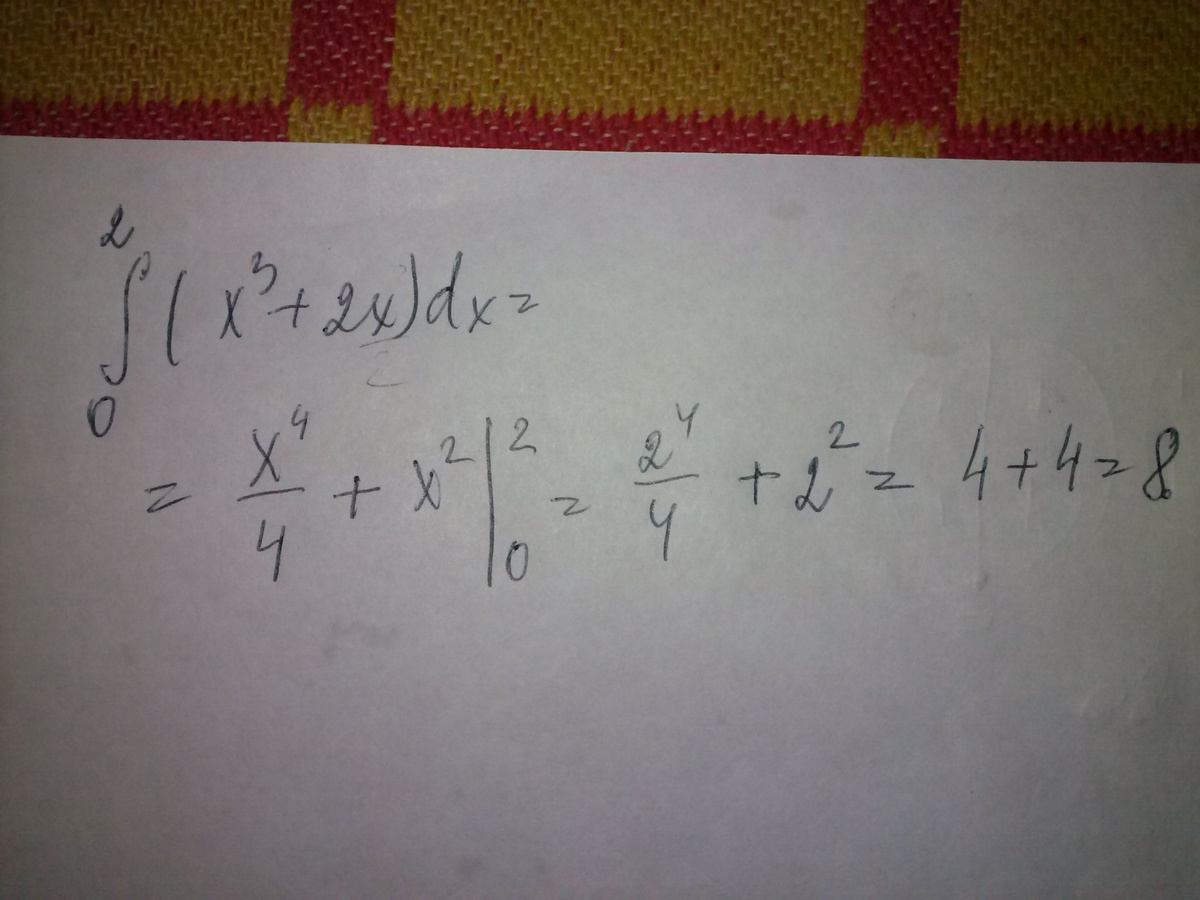 ∫₀² (x³ + 2x)dx =
= x⁴/4 + x² |₀² = 2⁴/4 + 2² = 4 + 4 = 8